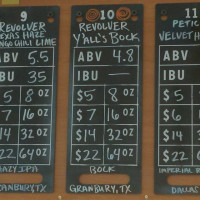 9
REVOLVER
TEXAS HAZE
NGO CHILI LIME
ABV 5.5
IBU 35
5 8 OZ
7 16 OZ
14 32 OZ
22 64 OZ
HAZY IPA
GRANBURY, TX
10
REVOLVER
Y'ALL'S BOCK
ABV 4.8
IBU —
$5 8 OZ
$7 16 OZ
$14 32 OZ
$22 64 OZ
BOCK
GRANBURY, TX
11
PETIC
VELVET H
ABV
IBU
$5
$6
$14
$22
IMPERIAL
DALLAS